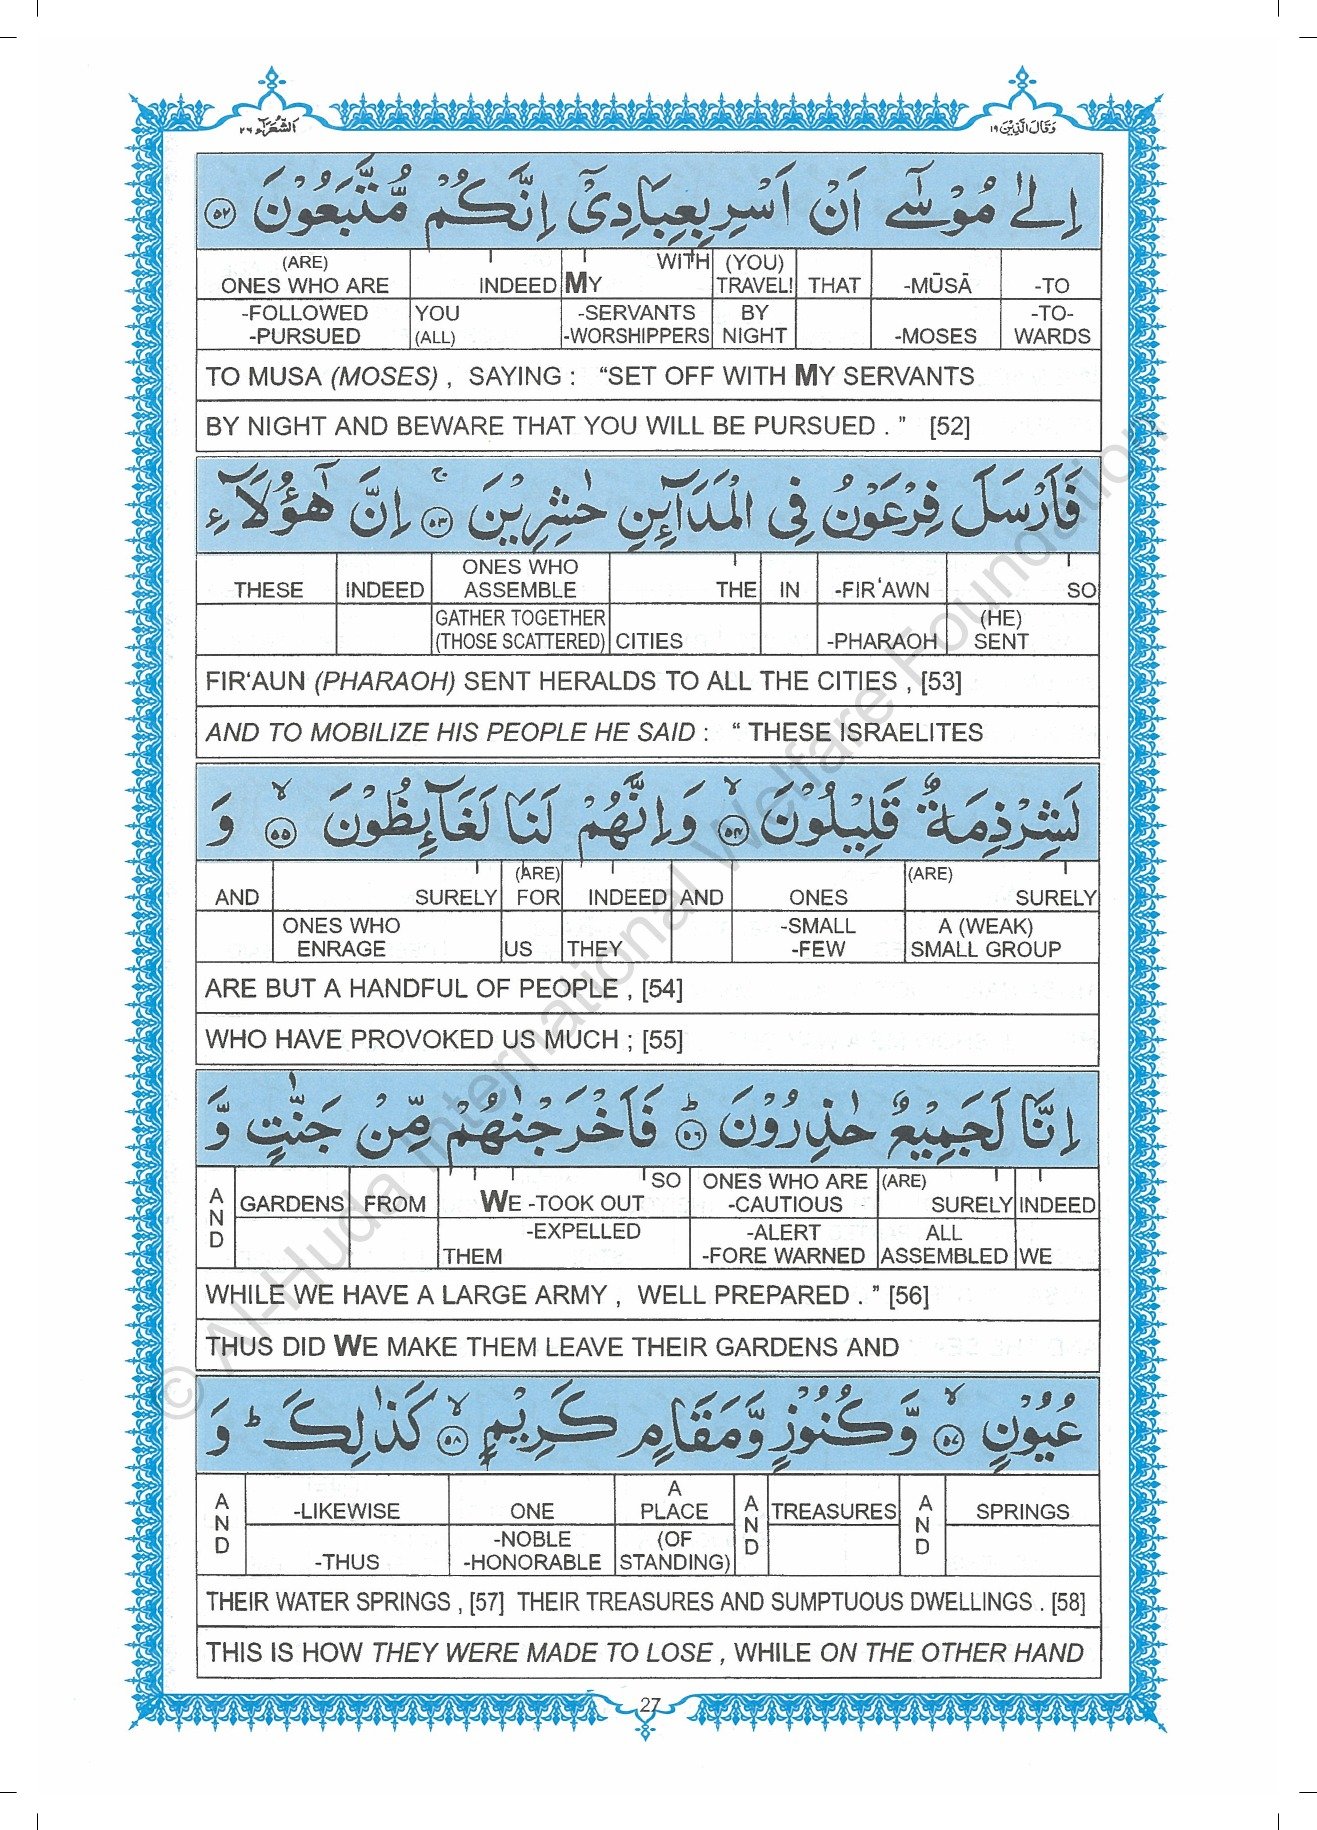 وَقَالَ الَّذِيْنَ ١٩
اَلشُّعَرَآء ٢٦
اِلٰى مُوْسٰٓى اَنْ اَسْرِ بِعِبَادِيْٓ اِنَّكُمْ مُّتَّبَعُوْنَ ٥٢
(ARE) ONES WHO ARE INDEED MY WITH (YOU) TRAVEL! THAT -MŪSĀ -TO
-FOLLOWED -PURSUED YOU (ALL) -SERVANTS -WORSHIPPERS BY NIGHT -MOSES -TO-WARDS
TO MUSA (MOSES) , SAYING : “SET OFF WITH MY SERVANTS
BY NIGHT AND BEWARE THAT YOU WILL BE PURSUED . ” [52]
فَاَرْسَلَ فِرْعَوْنُ فِي الْمَدَآئِنِ حٰشِرِيْنَ ۚ ٥٣ اِنَّ هٰٓؤُلَآءِ
THESE INDEED ONES WHO ASSEMBLE THE IN -FIR‘AWN SO
GATHER TOGETHER (THOSE SCATTERED) CITIES -PHARAOH (HE) SENT
FIR‘AUN (PHARAOH) SENT HERALDS TO ALL THE CITIES , [53]
AND TO MOBILIZE HIS PEOPLE HE SAID : “ THESE ISRAELITES
لَشِرْذِمَةٌ قَلِيْلُوْنَ ۙ ٥٤ وَاِنَّهُمْ لَنَا لَغَآئِظُوْنَ ۙ ٥٥ وَ
AND SURELY (ARE) FOR INDEED AND ONES (ARE) SURELY
ONES WHO ENRAGE US THEY -SMALL -FEW A (WEAK) SMALL GROUP
ARE BUT A HANDFUL OF PEOPLE , [54]
WHO HAVE PROVOKED US MUCH ; [55]
اِنَّا لَجَمِيْعٌ حٰذِرُوْنَ ۭ ٥٦ فَاَخْرَجْنٰهُمْ مِّنْ جَنّٰتٍ وَّ
AND GARDENS FROM WE -TOOK OUT SO ONES WHO ARE -CAUTIOUS (ARE) SURELY INDEED
-EXPELLED THEM -ALERT -FORE WARNED ALL ASSEMBLED WE
WHILE WE HAVE A LARGE ARMY , WELL PREPARED . ” [56]
THUS DID WE MAKE THEM LEAVE THEIR GARDENS AND
عُيُوْنٍ ۙ ٥٧ وَّكُنُوْزٍ وَّمَقَامٍ كَرِيْمٍ ۙ ٥٨ كَذٰلِكَ ۭ وَ
AND -LIKEWISE ONE A PLACE AND TREASURES AND SPRINGS
-THUS -NOBLE -HONORABLE (OF STANDING)
THEIR WATER SPRINGS , [57] THEIR TREASURES AND SUMPTUOUS DWELLINGS . [58]
THIS IS HOW THEY WERE MADE TO LOSE , WHILE ON THE OTHER HAND
27
© Al-Huda International Welfare Foundation